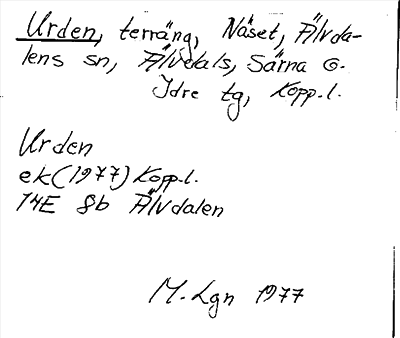 Urden, terräng, Näset, Älvda-
lens sn, Älvdals, Särna o.
Idre tg, Kopp.l.
Urden
ek (1977) Kopp.l.
14E 8b Älvdalen
M. Lgn 1977